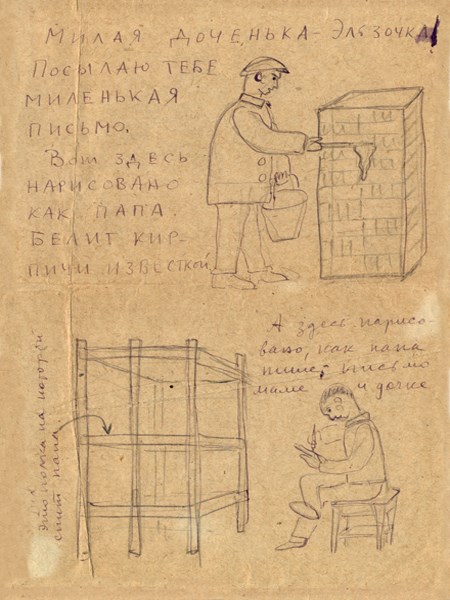 Милая доченька - Эльзочка!
Посылаю тебе
миленькая
письмо.
Вот здесь
нарисовано
как папа
белит кир-
пичи известкой
А здесь нарисо-
вано, как папа
пишет письмо
маме и дочке
Это полка на которой
спит папа